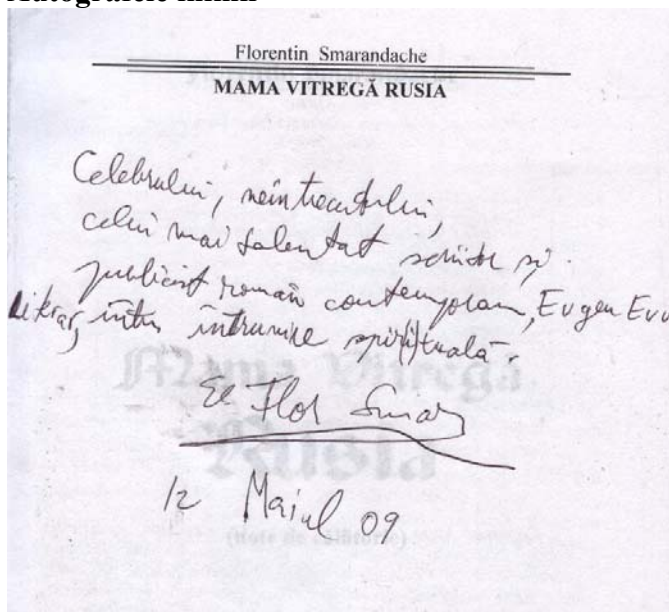 Florentin Smarandache
MAMA VITREGĂ RUSIA
Celebrului, neîntrecutului,
celui mai talentat scriitor și
publicist român contemporan, Eugen Evu
literar, întru întrunire spirituală.
Flor Smar
12 Maiul 09
Mama Vitregă
Rusia
(note de călătorie)